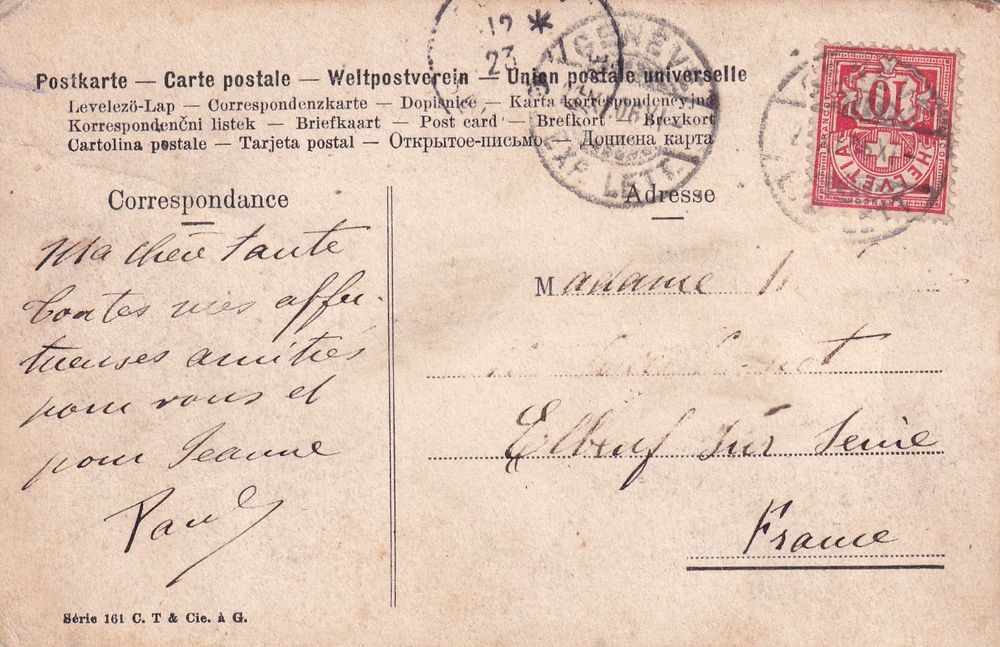 Postkarte — Carte postale — Weltpostverein — Union postale universelle
Levelező-Lap — Correspondenzkarte — Dopisnice — Karta korrespondencyjna
Korrespondenční listek — Briefkaart — Post card — Brefkort — Brevkort
Cartolina postale — Tarjeta postal — Открытое-письмо — Дописна карта
12
23
GENÈVE
EXP. LETT.
10
HELVETIA
Correspondance
Ma chère tante
toutes mes affec-
tueuses amitiés
pour vous et
pour Jeanne
Paul
Adresse
Madame
Elbeuf sur Seine
France
Série 161 C. T & Cie. à G.